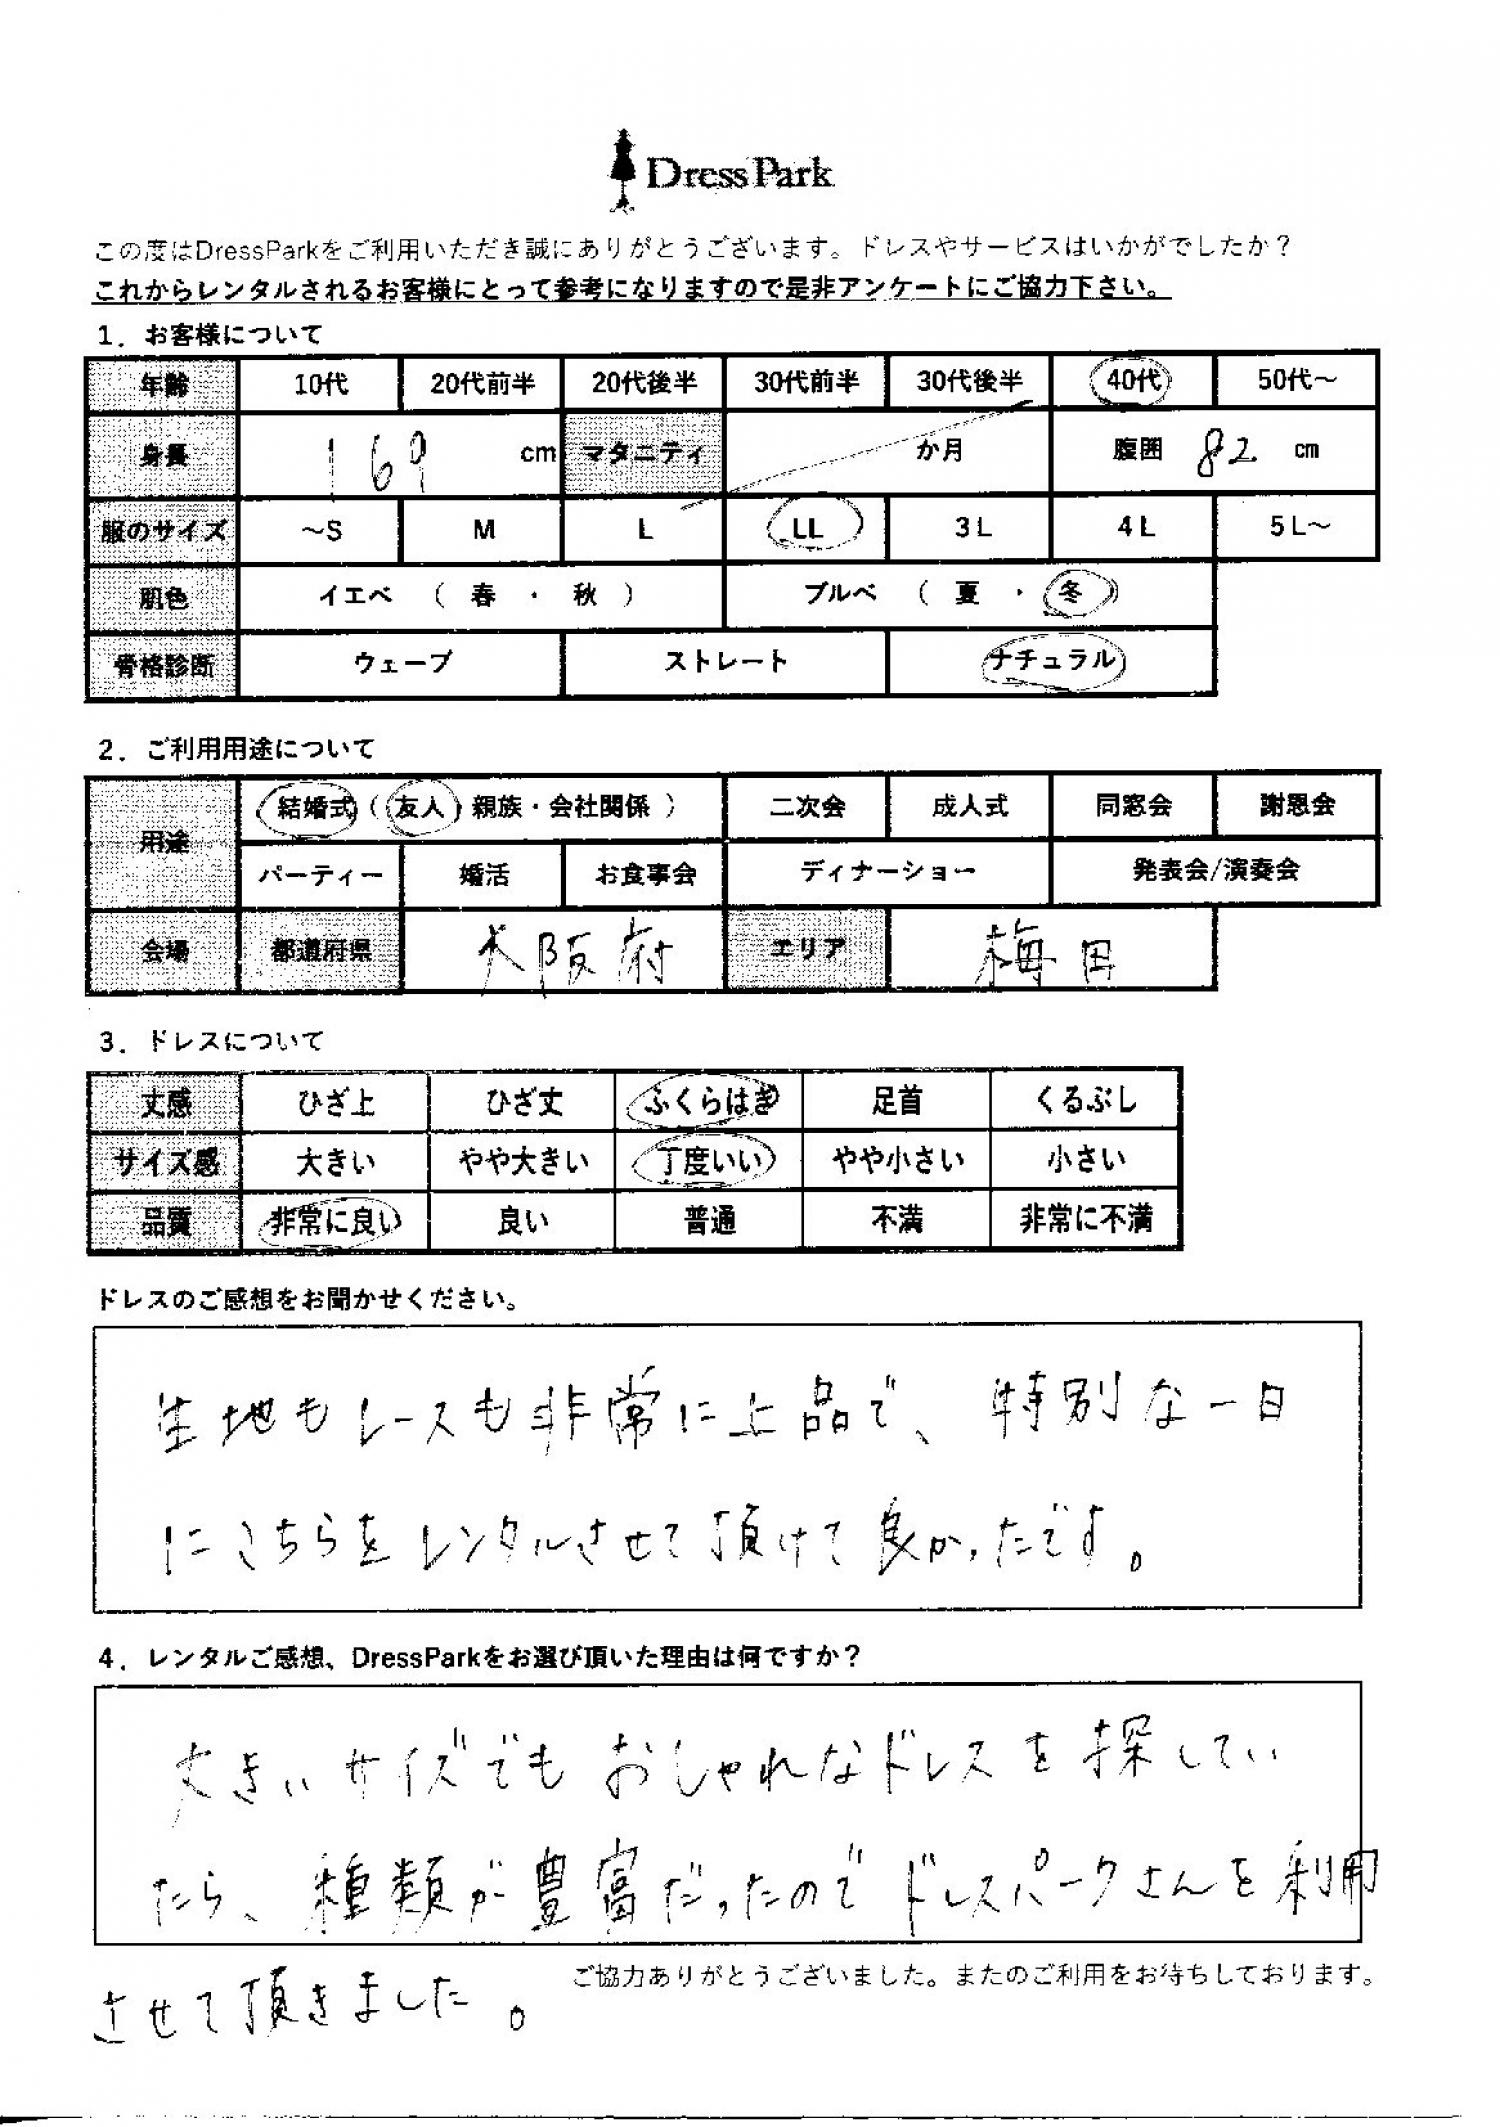 DressPark
この度はDressParkをご利用いただき誠にありがとうございます。ドレスやサービスはいかがでしたか？
これからレンタルされるお客様にとって参考になりますので是非アンケートにご協力下さい。
1．お客様について
年齢 10代 20代前半 20代後半 30代前半 30代後半 40代 50代～
身長 169 cm マタニティ か月 腹囲 82 cm
服のサイズ ～S M L LL 3L 4L 5L～
肌色 イエベ （ 春 ・ 秋 ） ブルべ （ 夏 ・ 冬 ）
骨格診断 ウェーブ ストレート ナチュラル
2．ご利用用途について
用途 結婚式（ 友人 ・親族・会社関係 ） 二次会 成人式 同窓会 謝恩会
パーティー 婚活 お食事会 ディナーショー 発表会/演奏会
会場 都道府県 大阪府 エリア 梅田
3．ドレスについて
丈感 ひざ上 ひざ丈 ふくらはぎ 足首 くるぶし
サイズ感 大きい やや大きい 丁度いい やや小さい 小さい
品質 非常に良い 良い 普通 不満 非常に不満
ドレスのご感想をお聞かせください。
生地もレースも非常に上品で、特別な一日
にこちらをレンタルさせて頂けて良かったです。
4．レンタルご感想、DressParkをお選び頂いた理由は何ですか？
大きいサイズでもおしゃれなドレスを探してい
たら、種類が豊富だったのでドレスパークさんを利用
させて頂きました。
ご協力ありがとうございました。またのご利用をお待ちしております。